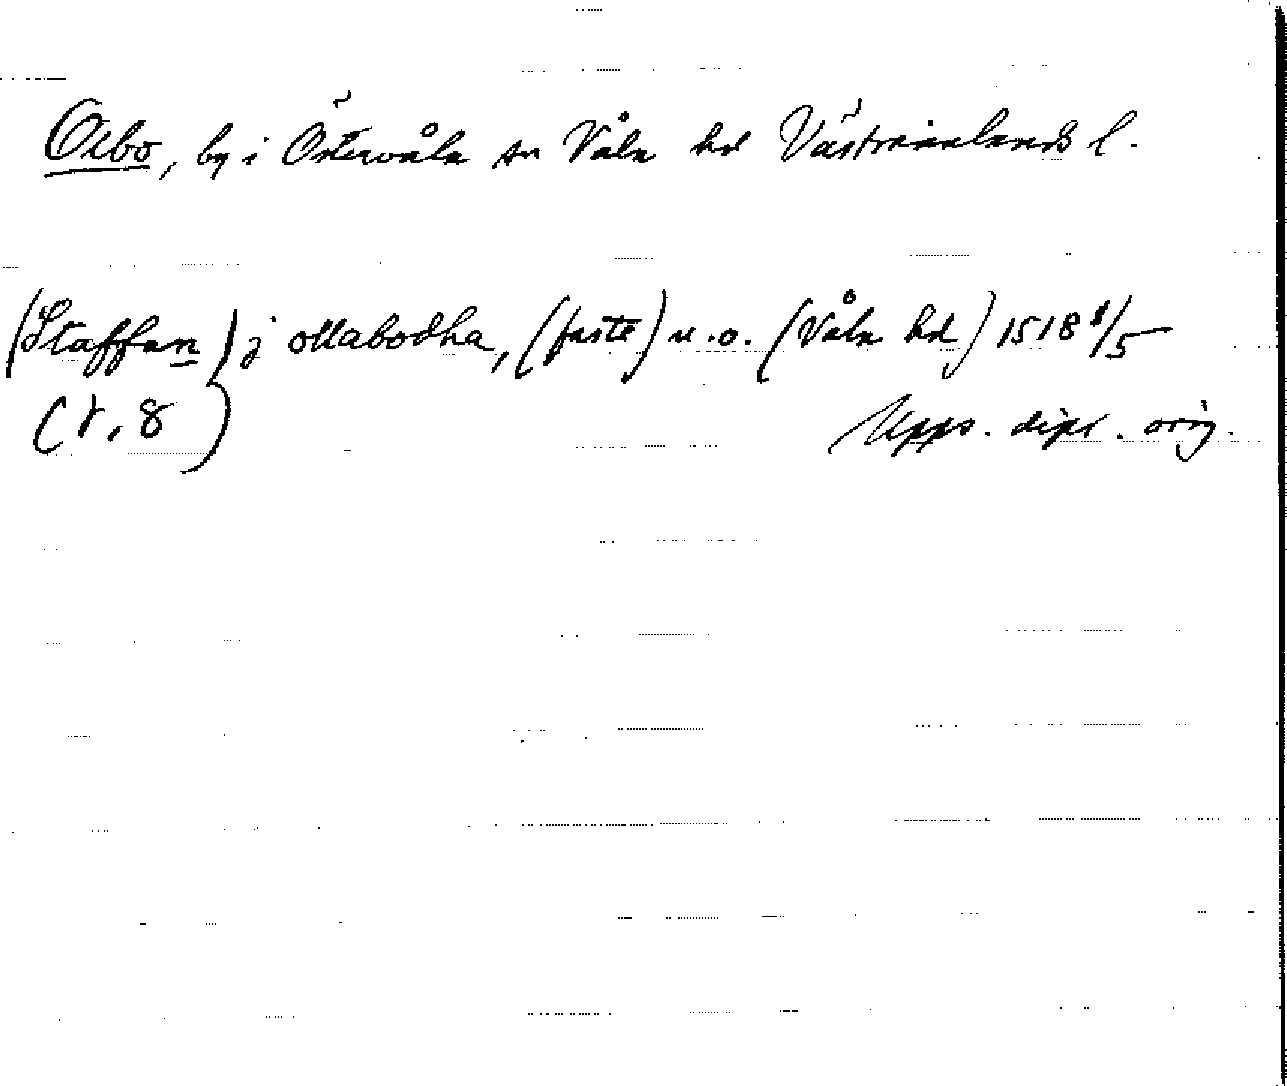 Olbo, by i Östervåla sn Våla hd Västmanlands l.
(Staffan) j ollabodha, (faste) u.o. (Våla hd) 1518 8/5
(r, 8) Upps. dipl. orig.